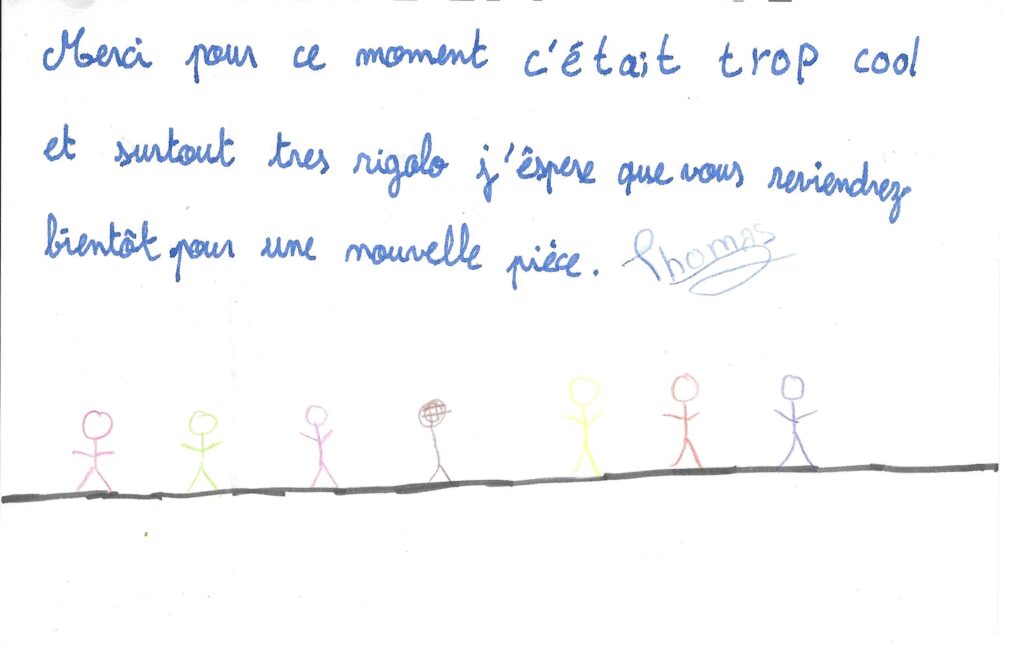 Merci pour ce moment c'était trop cool
et surtout tres rigolo j'êspere que vous reviendrez
bientôt pour une nouvelle piéce. Thomas